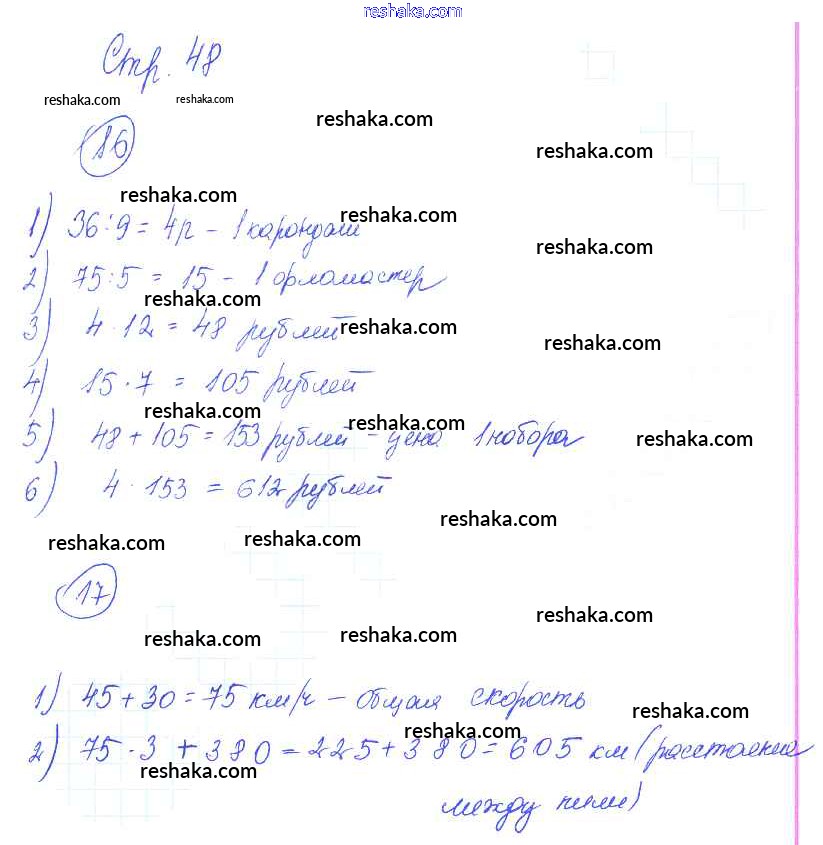 reshaka.com
Стр. 48
reshaka.com reshaka.com
reshaka.com
16
reshaka.com
reshaka.com
reshaka.com
1) 36:9 = 4р – 1 карандаш
reshaka.com
2) 75:5 = 15 – 1 фломастер
reshaka.com
reshaka.com
3) 4 · 12 = 48 рублей
reshaka.com
4) 15 · 7 = 105 рублей
reshaka.com
reshaka.com
5) 48 + 105 = 153 рублей – цена 1 набора
reshaka.com
6) 4 · 153 = 612 рублей
reshaka.com
reshaka.com reshaka.com
17
reshaka.com
reshaka.com reshaka.com
1) 45 + 30 = 75 км/ч – общая скорость
reshaka.com
reshaka.com
2) 75 · 3 + 380 = 225 + 380 = 605 км (расстояние
reshaka.com
между ними)